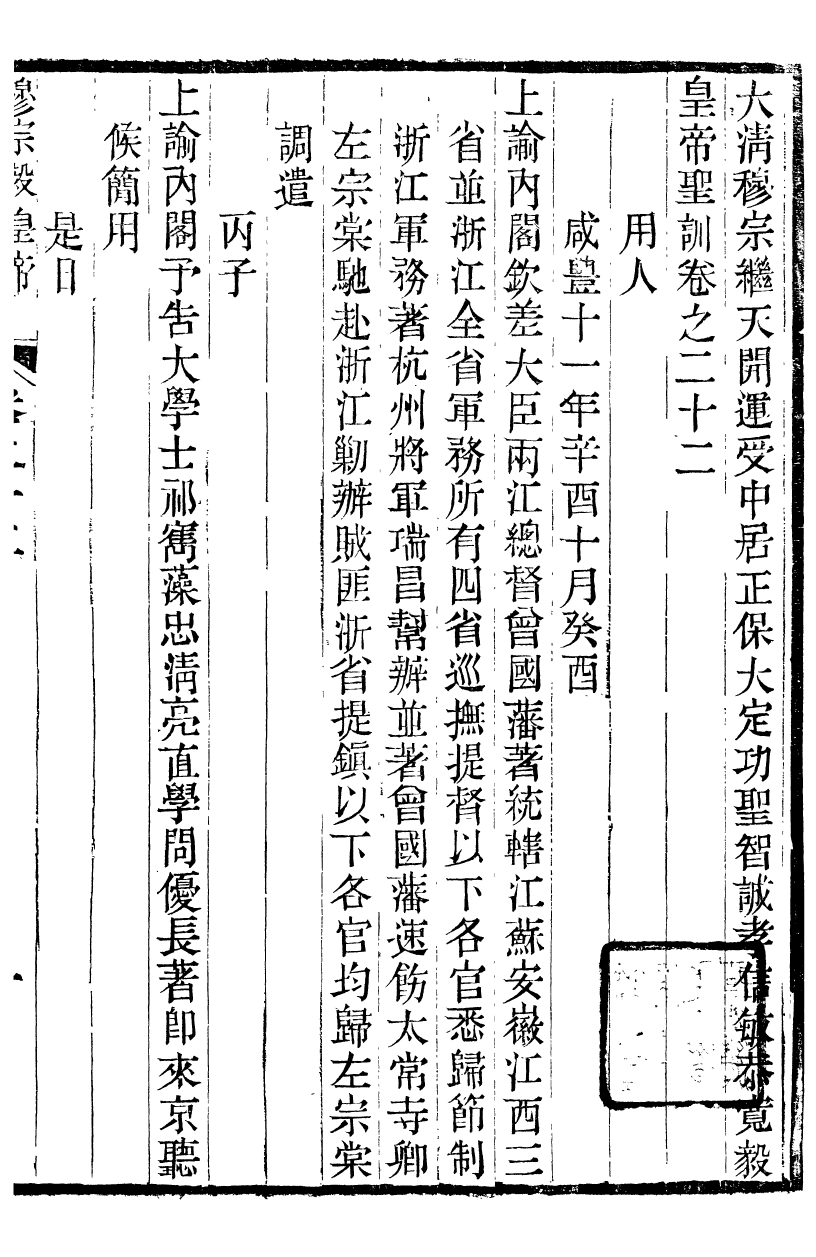 大清穆宗繼天開運受中居正保大定功聖智誠孝信敏恭寬毅
皇帝聖訓卷之二十二
用人
咸豐十一年辛酉十月癸酉
上諭內閣欽差大臣兩江總督曾國藩著統轄江蘇安徽江西三
省並浙江全省軍務所有四省巡撫提督以下各官悉歸節制
浙江軍務著杭州將軍瑞昌幫辦並著曾國藩速飭太常寺卿
左宗棠馳赴浙江勦辦賊匪浙省提鎭以下各官均歸左宗棠
調遣
丙子
上諭內閣予告大學士祁寯藻忠淸亮直學問優長著卽來京聽
候簡用
是日
穆宗毅皇帝 卷二十二